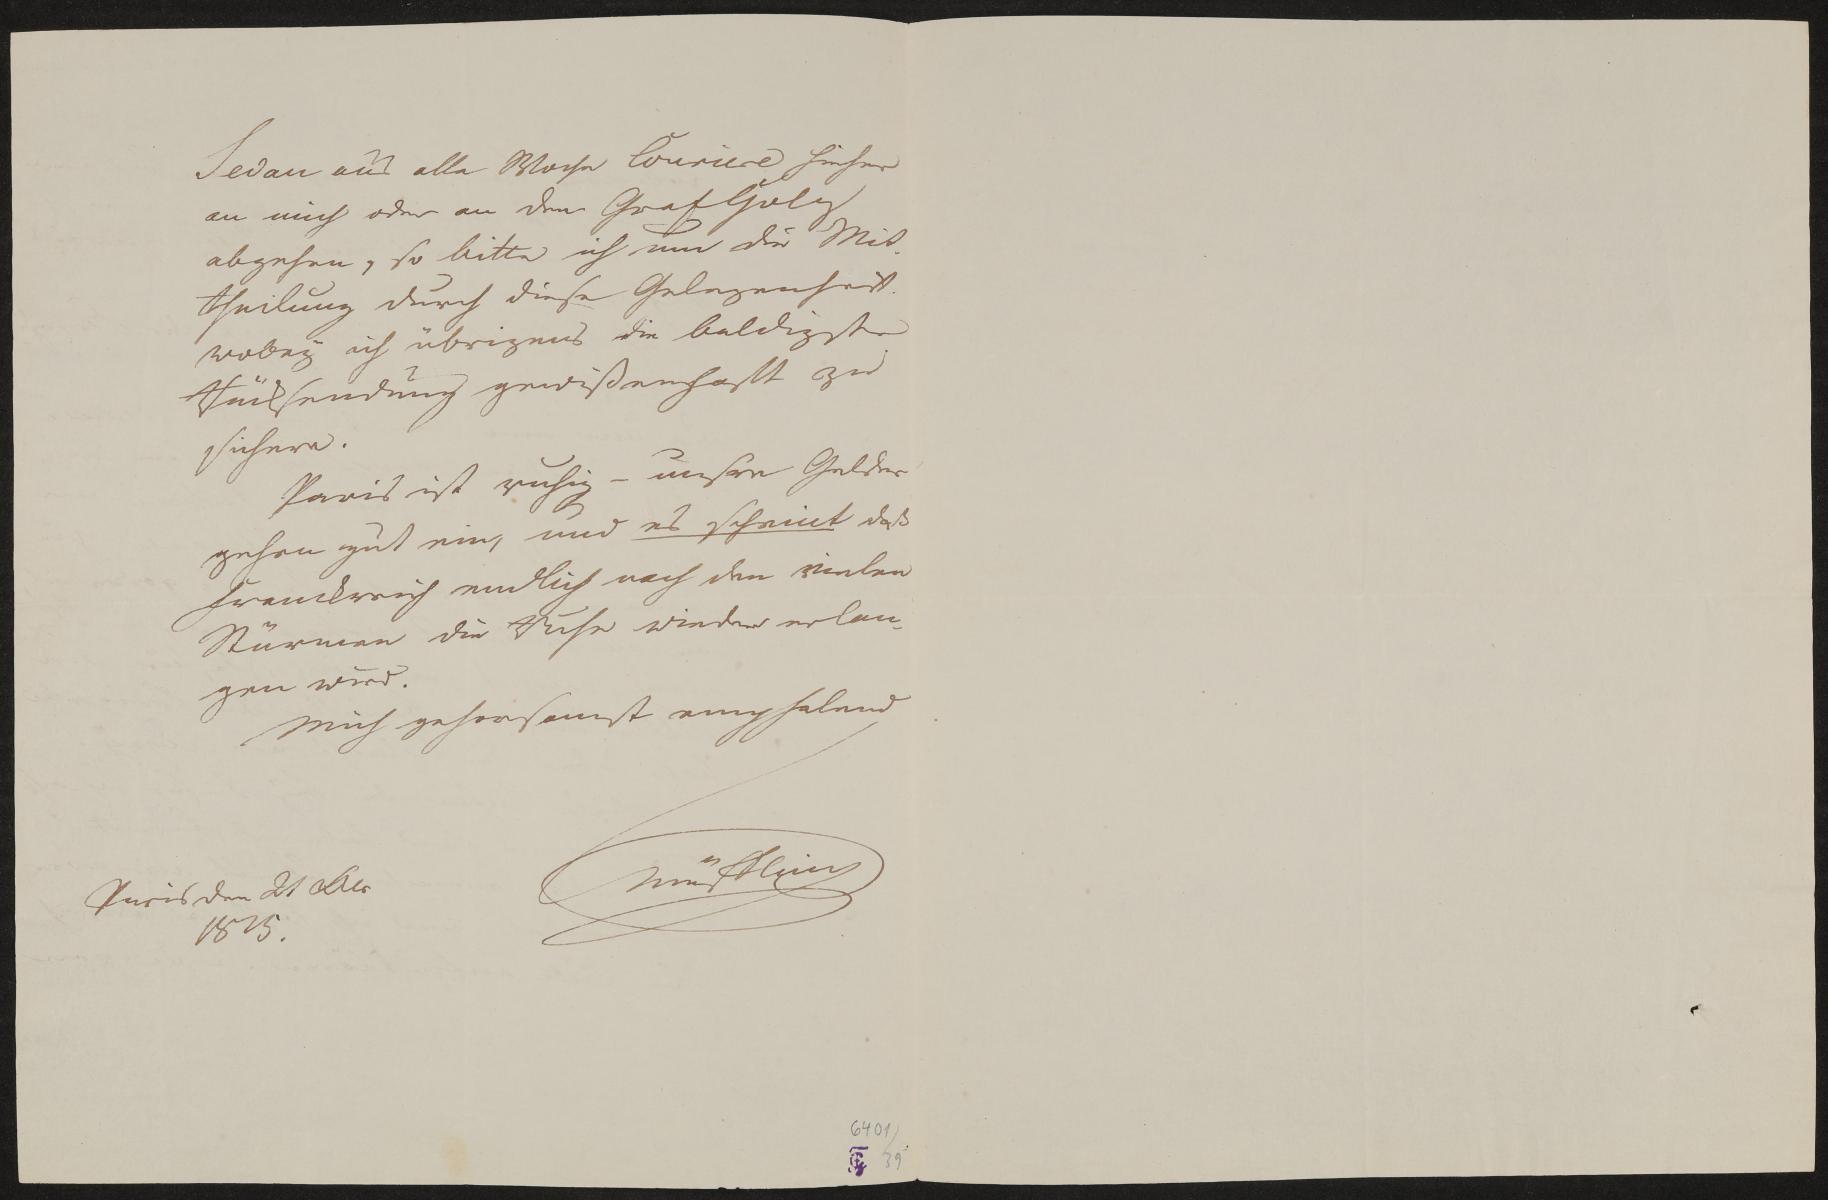 Sedan aus alle Woche Couriere hieher
an mich oder an den Graf Golz
abgehen, so bitte ich um die Mit-
theilung durch diese Gelegenheit.
wobey ich übrigens die baldigste
Rücksendung gewißenhafft zu
sichere.
Paris ist ruhig – unsre Gelder
gehen gut ein, und es scheint daß
Franckreich endlich nach den vielen
Stürmen die Ruhe wieder erlan-
gen wird.
Mich gehorsamst empfehlend
Müffling
Paris den 21 Dec
1815.
6401/
39